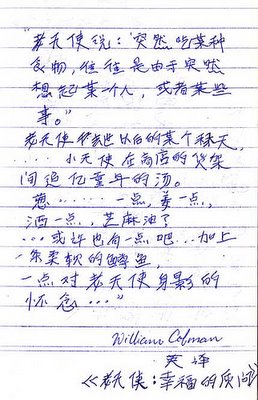 "老天使说："突然吃某种
食物，往往是由于突然
想起某一个人，或者某些
事。"
老天使去世以后的某个秋天，
.... 小天使在商店的货架
间追忆童年的汤。
葱.....一点，姜一点，
酒一点，芝麻油了
...或许也有一点吧...加上
一条柔软的鳕鱼，
一点对老天使身影的
怀念..."
William Cofman
英译
《老天使：幸福的质问》